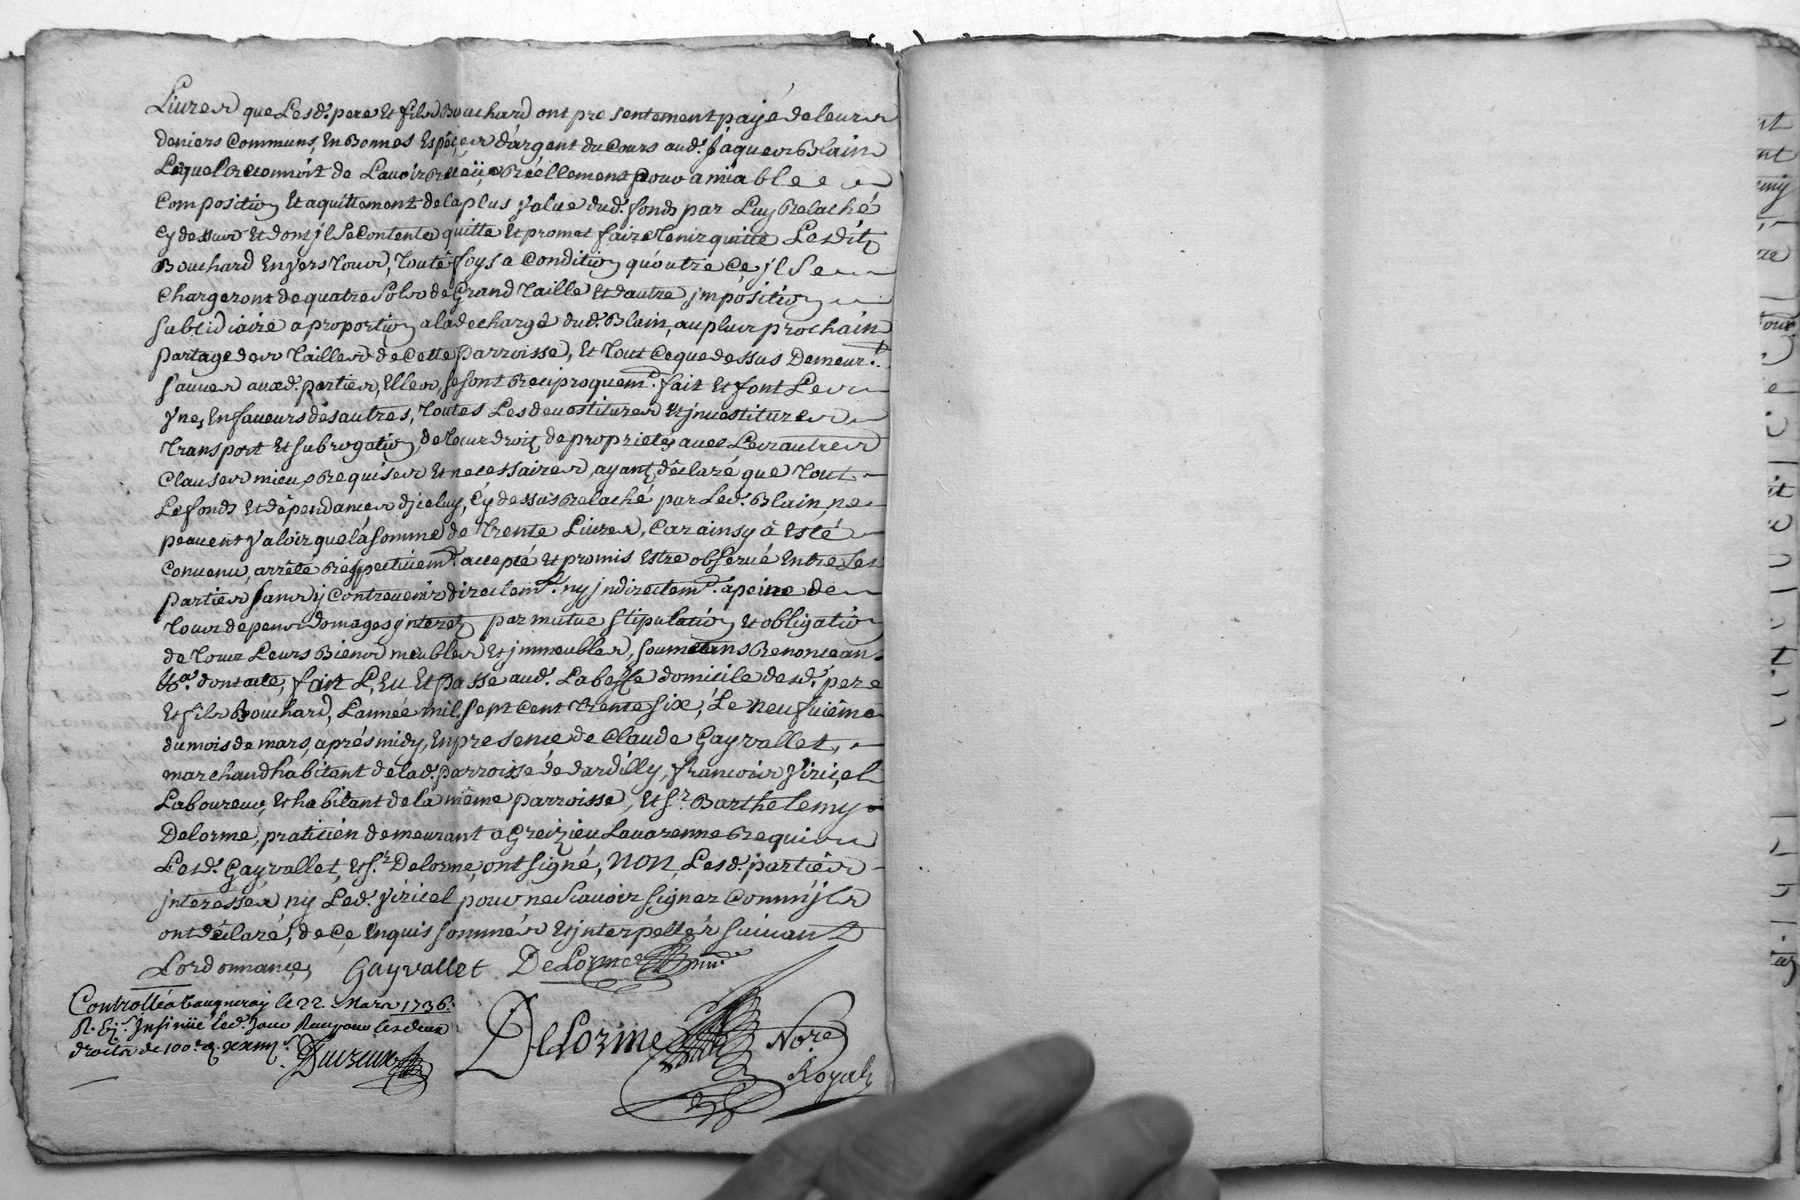 Livres que Lesd. pere Et fils Bouchard ont presentement payé de leurs
deniers Communs, En Bonnes Espéces d'argent du Cours aud. Jâques Blain
Lequel Reconnoit de L'avoir Receü, Réellement pour amiable
Composition Et aquittement de la plus value dud. fonds par Luy Relaché
Cy dessus Et dont jl Se Contente quitte Et promet faire tenir quitte Lesdits
Bouchard Envers tous, toutefoys a Condition qu'outre Ce, jl Se
Chargeront de quatre Sols de Grand taille Et d'autre jmposition
Subcidiaire a proportion a la decharge dud. Blain, au plus prochain
partage des tailles de Cette parroisse, Et tout Ce que dessus Demeurt.
Sauves auxd. parties, Elles, Se sont Reciproquemt. fait Et font Les
Vnes En faveurs des autres, toutes Les devestitures Et jnvestitures
transport Et Subrogation, de tous droits de proprietés avec Les autres
Clauses mieux Requises Et necessaires, ayants déclaré que tout
Le fonds Et dépendances d'jceluy, Cy dessus Relaché par Led. Blain, ne
peuvent valoir que la somme de trente Livres, Car ainsy à Esté
Convenu, arrêté Réspectivemt. accepté Et promis Estre observé Entre Les
parties Sans y Contrevenir directemt. ny jndirectemt. a peine de
tous depens domages jnterets par mutue Stipulation Et obligation
de tous Leurs Biens meubles Et jmmeubles, Soumetans Renonceans
&a. dont acte, fait L,Eu Et passé aud. Labesse domicile desd. pere
Et fils Bouchard, L'année mil Sept Cent trente Six, Le neufuiéme
du mois de mars, aprés midy, En presence de Claude Gayvallet,
marchand habitant de lad. parroisse de dardilly, francois Viricel
Laboureur, Et habitant de la même parroisse, Et Sr. Barthelemy
Delorme, praticien demeurant a Greizieu Lavarenne Requis
Lesd. Gayvallet, Et Sr. Delorme, ont Signé, non Lesd. parties
jnteressés ny Led. Viricel pour ne Scavoir Signer Comm'jls
ont déclaré, de Ce Enquis Sommés Et jnterpellés Suivant
L'ordonnance, Gayvallet DeLorme
Controllé a Vaugneray le 22. Mars 1736.
Insinüé led. Jour Reçu pour les deux
droits de 100e. &
DeLorme Nore
Royal